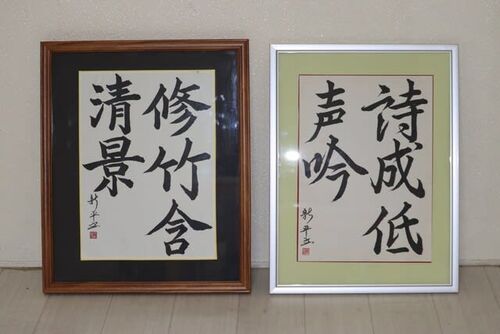 修竹含
清景
詩成低
声吟